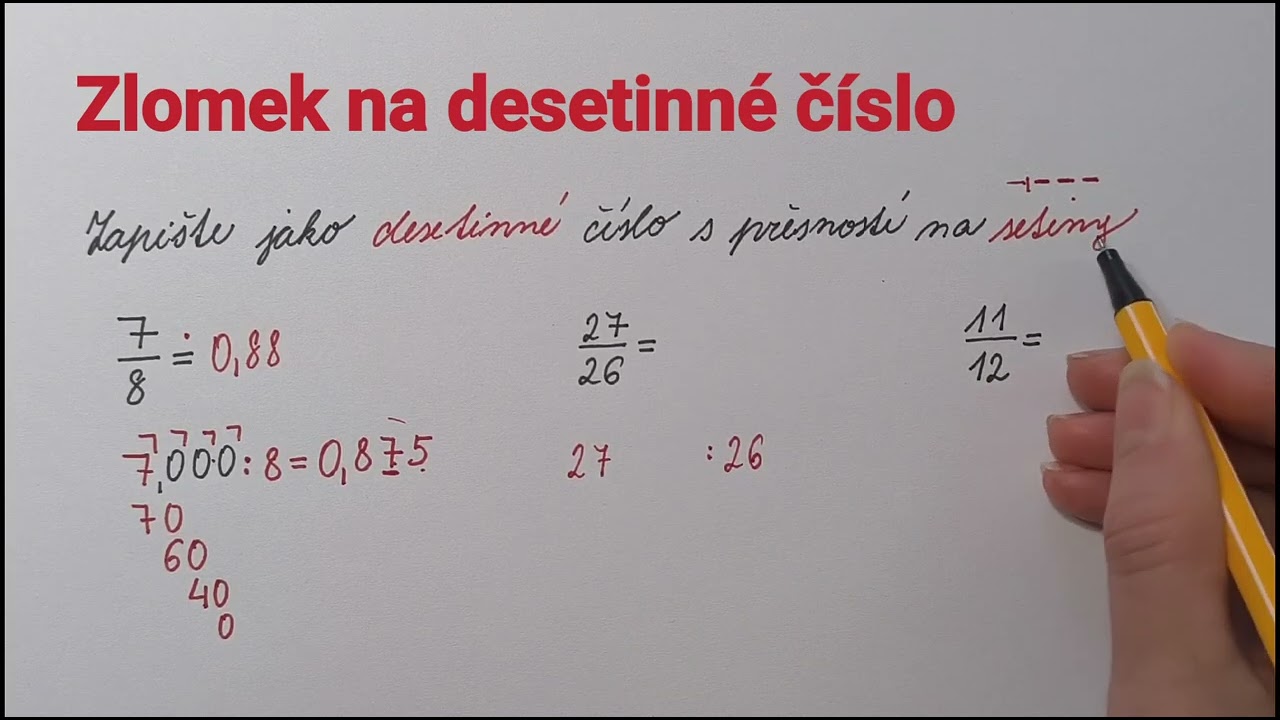 Zlomek na desetinné číslo
Zapište jako desetinné číslo s přesností na setiny
7/8 ≐ 0,88
27/26 =
11/12 =
7,000 : 8 = 0,875
27 : 26
70
60
40
0